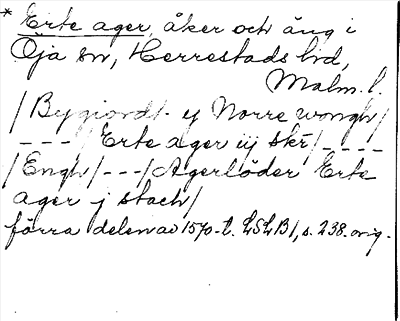 * Erte ager, åker och äng i
Öja sn, Herrestads hd,
Malm. l.
/Bygiordt y Norre wongh/
---/Erte ager iij skr̄/----
/Engh/---/Agerlöder Erte
ager j stach/
förra delen av 1570-t. LSLB1, s. 238. orig.